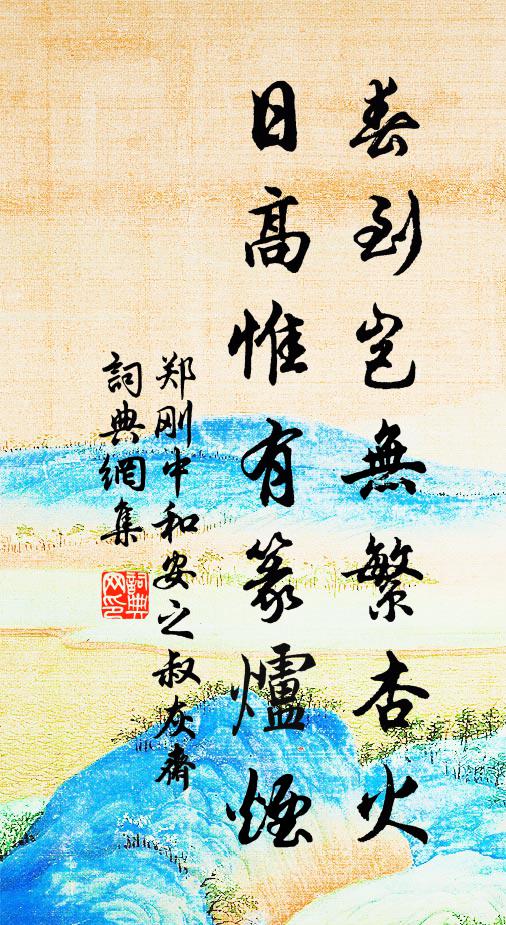 春到岂無繁杏火
日高惟有篆爐煙
郑刚中和安之叔灰斋
詞典網集
詞典网印